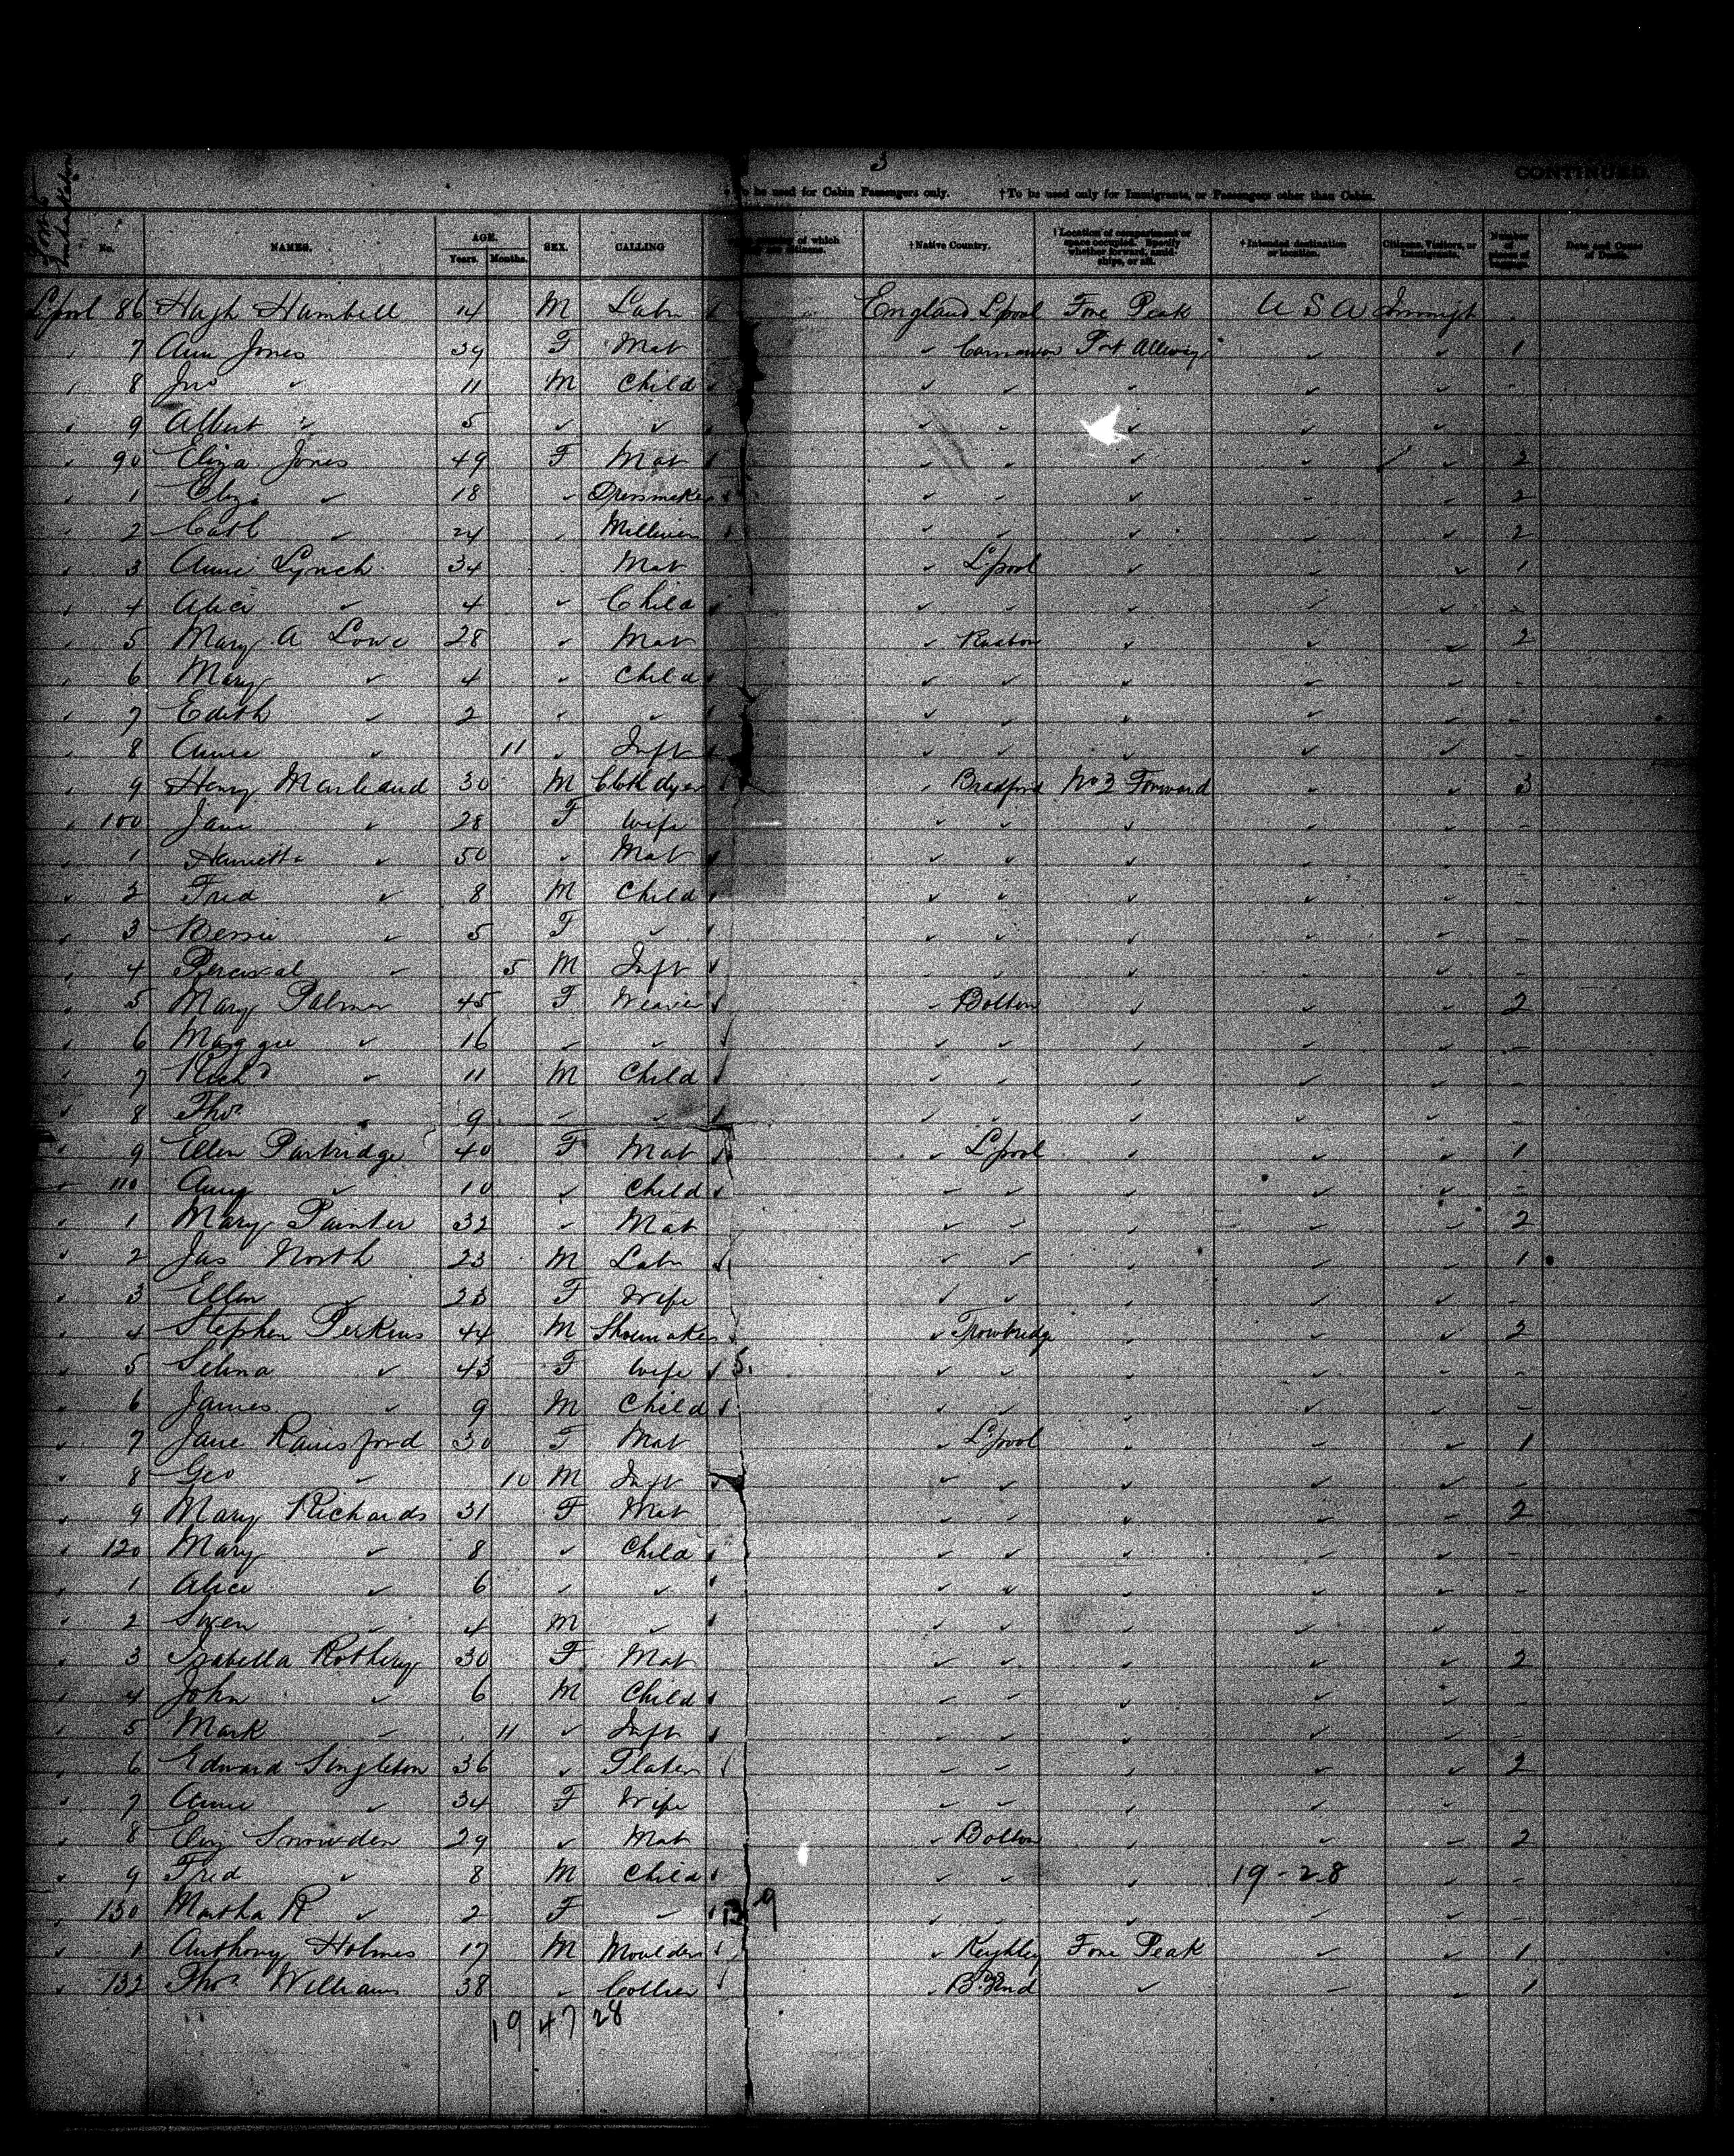 3
CONTINUED
To be used for Cabin Passengers only. †To be used only for Immigrants, or Passengers other than Cabin.
No. NAMES. AGE. Years. Months. SEX. CALLING of which citizens. †Native Country. †Location of compartment or space occupied. Specify whether forward, amidships, or aft. †Intended destination or location. Citizens, Visitors, or Immigrants. Number of pieces of Date and Cause of Death.
L'pool 86 Hugh 14 M Labr England L'pool Fore Peak U S A Immigt
7 Ann Jones 39 F Mat ✓ Port Alleway ✓ ✓ 1
8 Jno ✓ 11 M Child ✓ ✓ ✓ ✓ ✓ -
9 Albert ✓ 5 ✓ ✓ ✓ ✓ ✓ ✓ ✓
90 Eliza Jones 49 F Mat ✓ ✓ ✓ ✓ ✓ 2
1 Eliza ✓ 18 ✓ Dressmaker ✓ ✓ ✓ ✓ ✓ 2
2 Cath ✓ 24 ✓ Milliner ✓ ✓ ✓ ✓ ✓ 2
3 Annie Lynch 34 Mat ✓ L'pool ✓ ✓ ✓ 1
4 Alice ✓ 4 ✓ Child ✓ ✓ ✓ ✓ ✓ -
5 Mary A Lowe 28 ✓ Mat ✓ Ruabon ✓ ✓ ✓ 2
6 Mary ✓ 4 ✓ Child ✓ ✓ ✓ ✓ ✓ -
7 Edith ✓ 2 ✓ ✓ ✓ ✓ ✓ ✓ ✓ -
8 Annie ✓ 11 ✓ Inft ✓ ✓ ✓ ✓ ✓ -
9 Henry 30 M Cloth dyer ✓ Bradford No 2 Forward ✓ ✓ 3
100 Jane ✓ 28 F Wife ✓ ✓ ✓ ✓ ✓ -
1 Harriett ✓ 50 ✓ Mat ✓ ✓ ✓ ✓ ✓ -
2 Fred ✓ 8 M Child ✓ ✓ ✓ ✓ ✓ -
3 Bessie ✓ 5 F ✓ ✓ ✓ ✓ ✓ ✓ -
4 Percival ✓ 5 M Inft ✓ ✓ ✓ ✓ ✓ -
5 Mary Palmer 45 F Weaver ✓ Bolton ✓ ✓ ✓ 2
6 Maggie ✓ 16 ✓ ✓ ✓ ✓ ✓ ✓ ✓ -
7 Richd ✓ 11 M Child ✓ ✓ ✓ ✓ ✓ -
8 Thos ✓ 9 ✓ ✓ ✓ ✓ ✓ ✓ ✓ -
9 Ellen Partridge 40 F Mat ✓ L'pool ✓ ✓ ✓ 1
110 Amy ✓ 10 ✓ Child ✓ ✓ ✓ ✓ ✓ -
1 Mary Painter 32 ✓ Mat ✓ ✓ ✓ ✓ ✓ 2
2 Jas North 23 M Labr ✓ ✓ ✓ ✓ ✓ 1
3 Ellen ✓ 23 F Wife ✓ ✓ ✓ ✓ ✓ -
4 Stephen Perkins 44 M Shoemaker ✓ Trowbridge ✓ ✓ ✓ 2
5 Selina ✓ 43 F Wife 5. ✓ ✓ ✓ ✓ ✓ -
6 James ✓ 9 M Child ✓ ✓ ✓ ✓ ✓ -
7 Jane Rainsford 30 F Mat ✓ L'pool ✓ ✓ ✓ 1
8 Geo ✓ 10 M Inft ✓ ✓ ✓ ✓ ✓ -
9 Mary Richards 31 F Mat ✓ ✓ ✓ ✓ ✓ 2
120 Mary ✓ 8 ✓ Child ✓ ✓ ✓ ✓ ✓ -
1 Alice ✓ 6 ✓ ✓ ✓ ✓ ✓ ✓ ✓ -
2 ✓ 4 M ✓ ✓ ✓ ✓ ✓ ✓ -
3 Isabella Rothery 30 F Mat ✓ ✓ ✓ ✓ ✓ 2
4 John ✓ 6 M Child ✓ ✓ ✓ ✓ ✓ -
5 Mark ✓ 11 ✓ Inft ✓ ✓ ✓ ✓ ✓ -
6 Edward Singleton 36 ✓ Plater ✓ ✓ ✓ ✓ ✓ 2
7 Annie ✓ 34 F Wife ✓ ✓ ✓ ✓ ✓ -
8 Eliz Snowden 29 ✓ Mat ✓ Bolton ✓ ✓ ✓ 2
9 Fred ✓ 8 M Child ✓ ✓ ✓ 19-28 ✓ -
130 Martha R ✓ 2 F ✓ 9 ✓ ✓ ✓ ✓ ✓ -
1 Anthony Holmes 17 M Moulder ✓ Keighley Fore Peak ✓ ✓ 1
132 Thos Williams 38 ✓ Collier ✓ ✓ ✓ ✓ 1
19 47 28